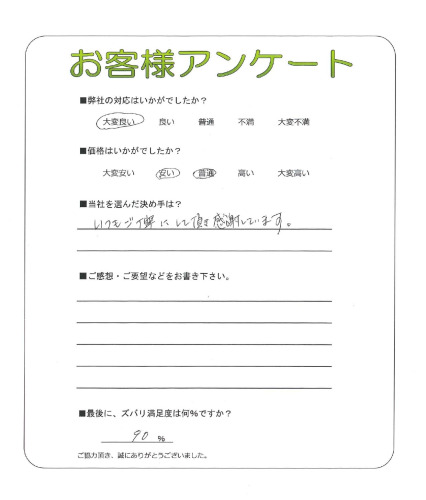 お客様アンケート
■弊社の対応はいかがでしたか？
大変良い 良い 普通 不満 大変不満
■価格はいかがでしたか？
大変安い 安い 普通 高い 大変高い
■当社を選んだ決め手は？
いつもご丁寧にして頂き感謝しています。
■ご感想・ご要望などをお書き下さい。
■最後に、ズバリ満足度は何%ですか？
90 %
ご協力頂き、誠にありがとうございました。